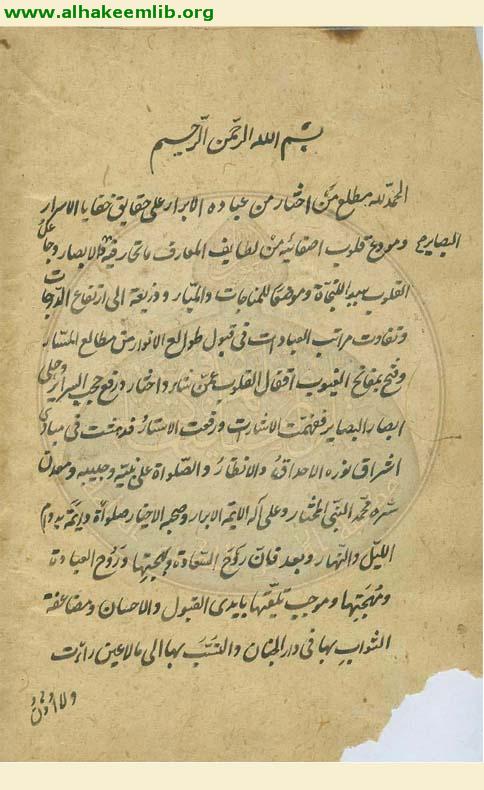 www.alhakeemlib.org
بسم الله الرحمن الرحيم
الحمد لله مطلع من اختار من عباده الابرار على حقايق خفايا الاسرار
ومودع قلوب اصفيائه من لطايف المعارف ما تحار فيه البصاير والابصار وجاعل
القلوب سببا للنجاة وموضعا للمناجات والمبار وذريعة الى ارتفاع الدرجات
وتفاوت مراتب العبادات في قبول طوالع الانوار من مطالع المسار
وفتح بمفاتح الغيوب اقفال القلوب عمن شاء واختار ورفع حجب السراير وجلى
ابصار البصاير ففهمت الاشارات ورفعت الاستار فدهشت في مبادى
اشراق نوره الاحداق والانظار والصلواة على نبيه وحبيبه ومعدن
سره محمد النبي المختار وعلى آله الايمة الابرار وصحبه الاخيار صلواة دايمة بدوام
الليل والنهار وبعد فان روح السعادة وبهجتها وروح العبادة
ومهجتها وموجب تلقيها بايدى القبول والاحسان ومضاعفة
الثواب بها في دار الجنان والتسبب بها الى ما لا عين رأت
ولا اذن